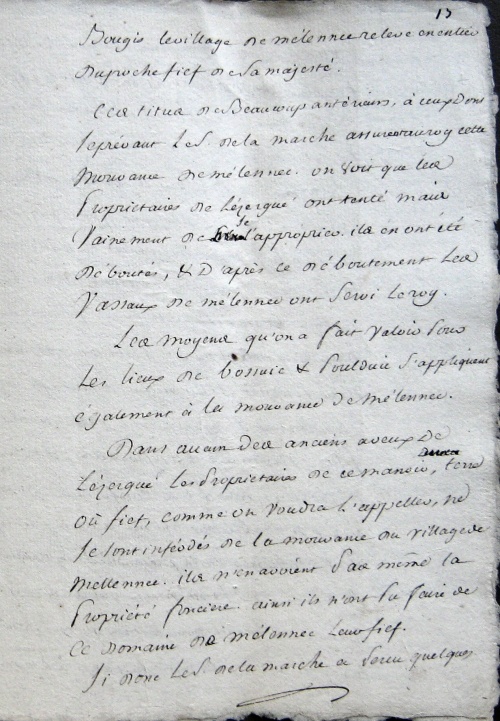 13
Bougis le village de mélennec releve en entier
du proche fief de sa majesté.
Ces titres de Beaucoup antérieurs, à ceux dont
se prévaut le S. de la marche assurent au roy cette
mouvance de mélennec. on voit que les
Proprietaires de Lézergué ont tenté mais
Vainement de se l'approprier. ils en ont été
déboutés, & D'après ce déboutement Les
Vassaux de mélennec ont servi Le roy.
Les moyens qu'on a fait valoir pour
Les lieux de bossuic & Poulduic s'appliquent
également à la mouvance de mélennec.
Dans aucun des anciens aveux de
Lézergué les Proprietaires de ce manoir, terre
où fief, comme on voudra L'appeller, ne
se sont inféodés de la mouvance du village de
mellennec. ils n'en avoient pas même la
Propriété fonciere. ainsi ils n'ont pu faire de
ce domaine de mélennec Leur fief.
Si donc Le S. de la marche a perçu quelques